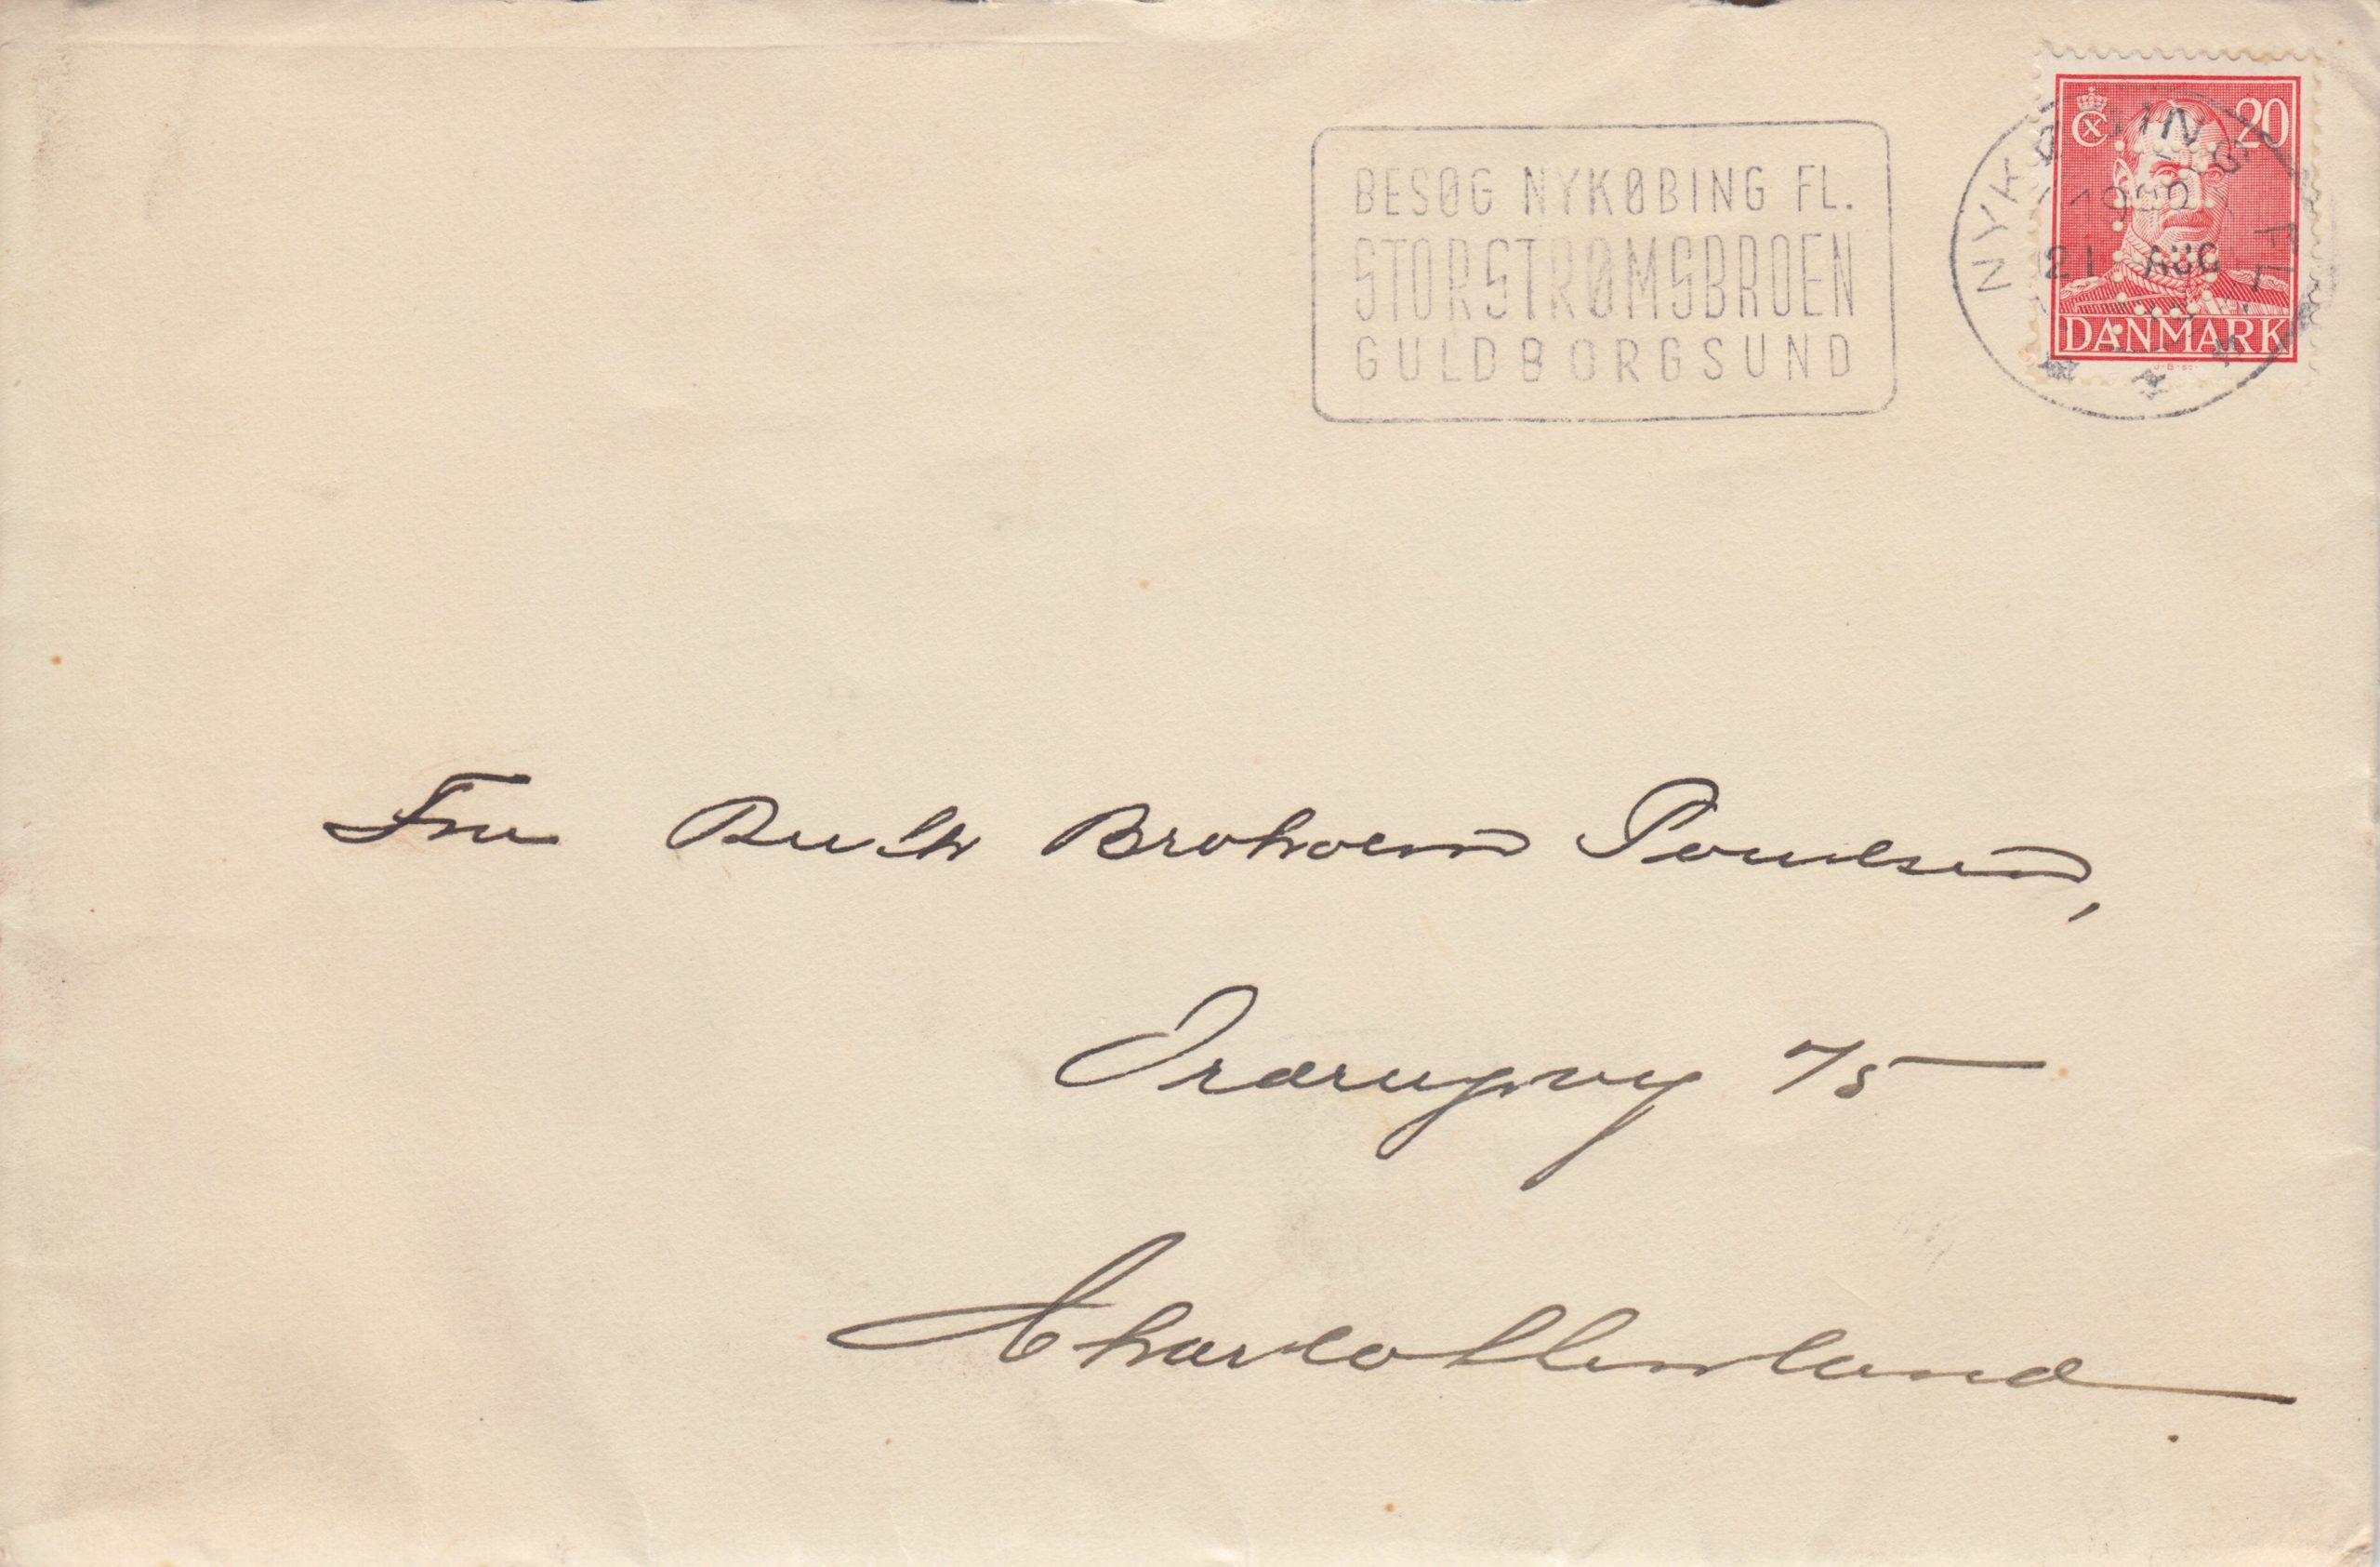 BESØG NYKØBING FL.
STORSTRØMSBROEN
GULDBORGSUND
NYKØBING FL.
21 AUG
20
DANMARK
Fru Ruth Broholm Poulsen,
75
Charlottenlund